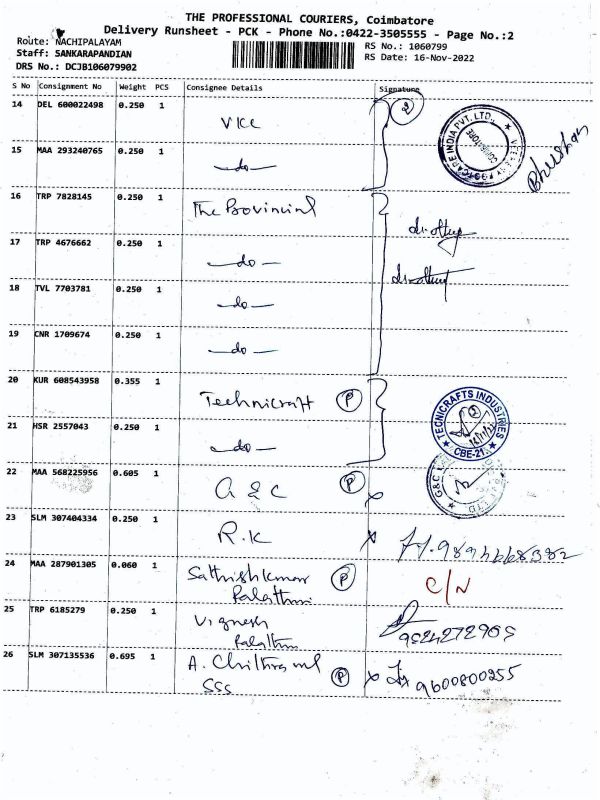 THE PROFESSIONAL COURIERS, Coimbatore
Delivery Runsheet - PCK - Phone No.:0422-3505555 - Page No.:2
Route: NACHIPALAYAM
Staff: SANKARAPANDIAN
DRS No.: DCJB106079902
RS No.: 1060799
RS Date: 16-Nov-2022
S No Consignment No Weight PCS Consignee Details Signature
14 DEL 600022498 0.250 1 VKC 2
15 MAA 293240765 0.250 1 -do- Bhushan
16 TRP 7828145 0.250 1 The Provincial
17 TRP 4676662 0.250 1 -do-
18 TVL 7703781 0.250 1 -do-
19 CNR 1709674 0.250 1 -do-
20 KUR 608543958 0.355 1 Technicraft P
TECNICRAFTS INDUSTRIES
CBE-21.
21 HSR 2557043 0.250 1 -do-
22 MAA 568225956 0.605 1 G & C P x
G&C
23 SLM 307404334 0.250 1 R.K x
24 MAA 287901305 0.060 1 Sathishkumar P C/N
Palathui
25 TRP 6185279 0.250 1 Vignesh
9524272965
26 SLM 307135536 0.695 1 A. Chithra P x 9600800255
SSS